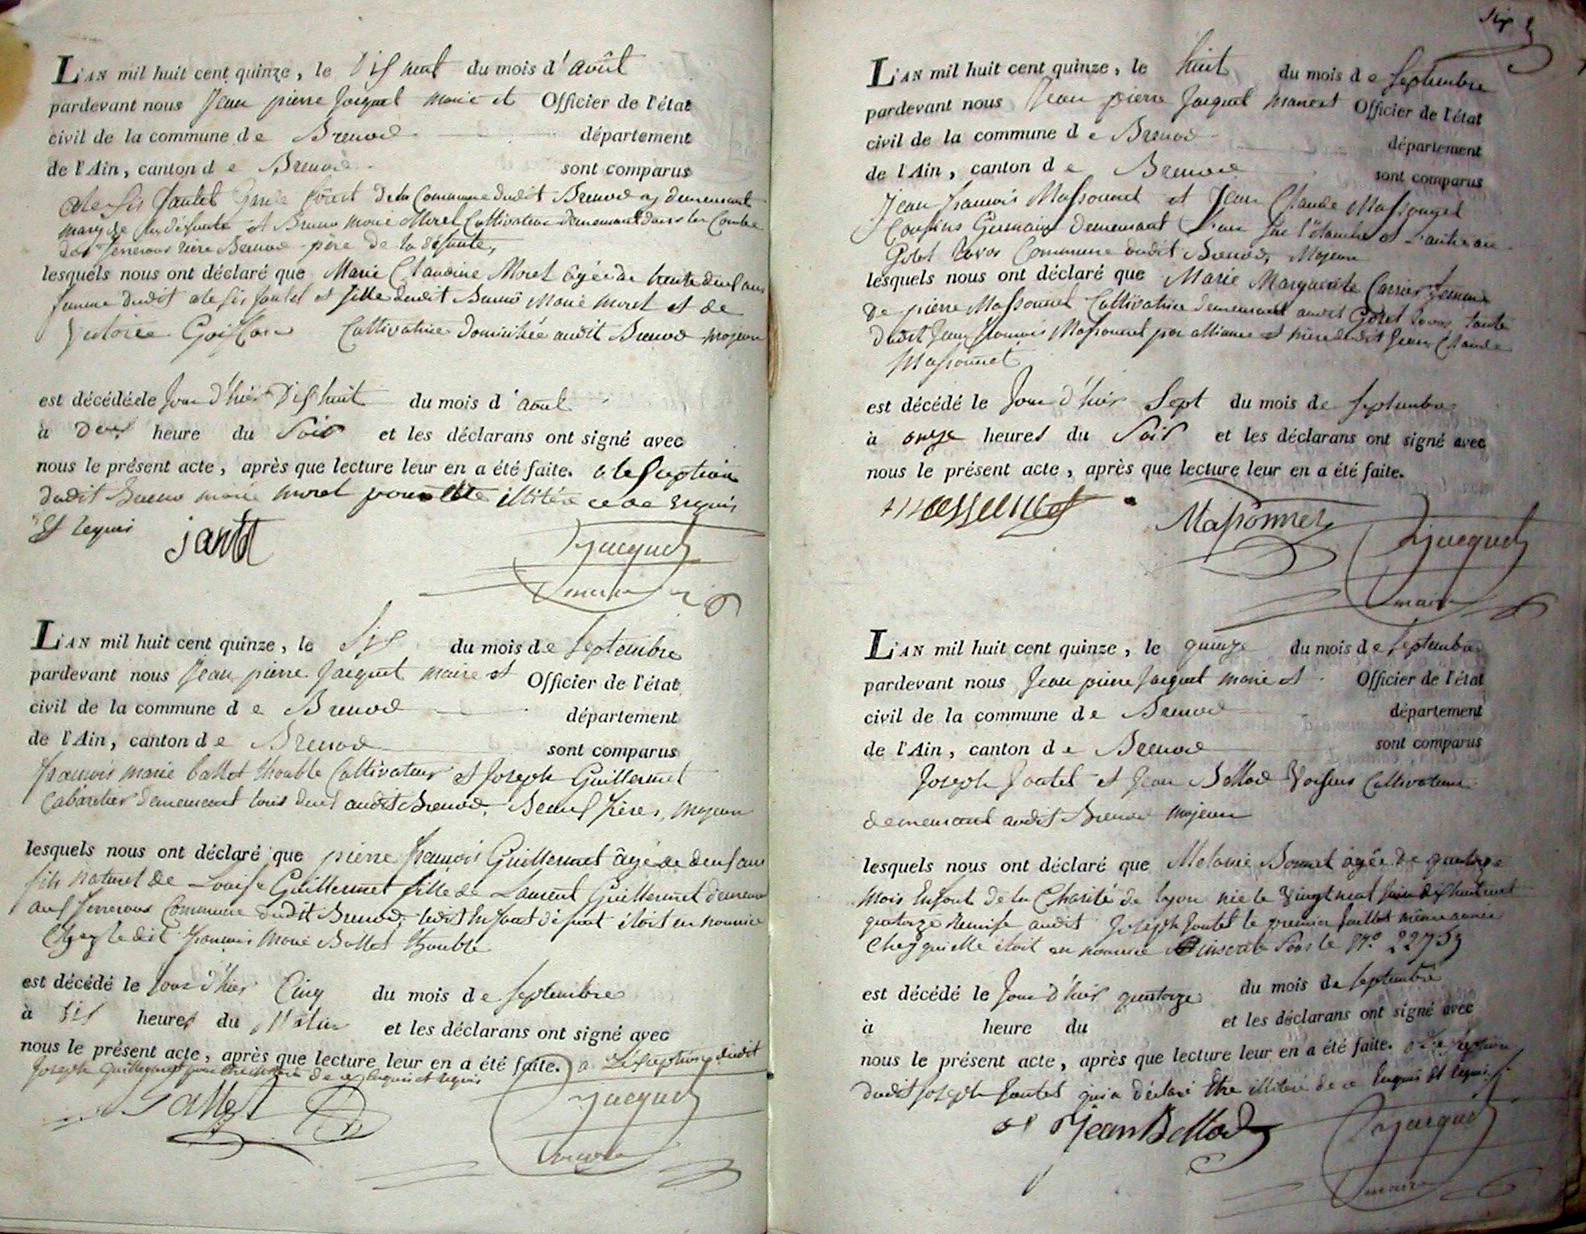 L'AN mil huit cent quinze, le Dix neuf du mois d'août
pardevant nous Jean pierre Jacquet maire et Officier de l'état
civil de la commune de Brenod département
de l'Ain, canton de Brenod sont comparus
Jantet de la Commune dudit Brenod y demeurant
mary de la défunte et Bruno marie Moret Cultivateur demeurant dans la Combe
Brenod père de la défunte,
lesquels nous ont déclaré que Marie Claudine Moret âgée de trente deux ans
femme dudit Jantet et fille dudit Bruno marie moret et de
Cultivatrice domiciliée audit Brenod majeur
est décédée le Jour d'hier Dix huit du mois d'aout
à deux heure du Soir et les déclarans ont signé avec
nous le présent acte, après que lecture leur en a été faite. a lexception
dudit Bruno marie moret pour être illitéré de ce enquis
Et requis jantet Jacquet
maire
L'AN mil huit cent quinze, le Six du mois de Septembre
pardevant nous Jean pierre Jacquet maire et Officier de l'état
civil de la commune de Brenod département
de l'Ain, canton de Brenod sont comparus
françois marie ballot Cultivateur et Joseph Guillermet
Cabaretier demeurant tous deux audit Brenod, Beaux frères, majeurs
lesquels nous ont déclaré que pierre françois Guillermet âgé de deux ans
fils naturel de Louise Guillermet fille de Laurent Guillermet
Commune dudit Brenod, ledit Enfant défunt étoit en nourrice
Chez le dit françois Marie Ballot
est décédé le Jour d'hier Cinq du mois de Septembre
à six heures du Matin et les déclarans ont signé avec
nous le présent acte, après que lecture leur en a été faite. a Lexception dudit
Joseph Guillermet pour être illitéré de ce Enquis et requis
Ballet Jacquet
maire
Six
L'AN mil huit cent quinze, le huit du mois de Septembre
pardevant nous Jean pierre Jacquet maire et Officier de l'état
civil de la commune de Brenod département
de l'Ain, canton de Brenod sont comparus
Jean francois Massonnet et Jean Claude Massonnet
Cousins Germains demeurant L'un et L'autre au
Commune dudit Brenod, Majeurs
lesquels nous ont déclaré que Marie Marguerite Carrier femme
de pierre Massonnet Cultivatrice demeurant audit tante
dudit Jean francois Massonnet par alliance et mère dudit Jean Claude
Massonnet
est décédé le Jour d'hier Sept du mois de Septembre
à onze heures du Soir et les déclarans ont signé avec
nous le présent acte, après que lecture leur en a été faite.
Massonnet Jacquet
maire
L'AN mil huit cent quinze, le quinze du mois de Septembre
pardevant nous Jean pierre Jacquet maire et Officier de l'état
civil de la commune de Brenod département
de l'Ain, canton de Brenod sont comparus
Joseph Jantet et Jean Ballod Voisins Cultivateurs
demeurant audit Brenod majeurs
lesquels nous ont déclaré que Melanie Bonnet agée de quatorze
Mois Enfant de la Charité de lyon née le Vingt neuf juin dix huit cent
quatorze Remise audit Joseph Jantet le premier Juillet même année
Chez qui elle étoit en nourrice inscrite Sous le No. 22759
est décédé le Jour d'hier quatorze du mois de Septembre
à heure du et les déclarans ont signé avec
nous le présent acte, après que lecture leur en a été faite. a L'exception
dudit Joseph Jantet qui a déclaré Etre illitéré de ce Enquis Et requis
Jean Ballod Jacquet
maire